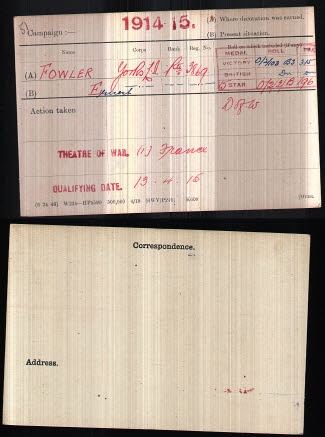 Campaign :— 1914-15. (A) Where decoration was earned.
(B) Present situation.
Name Corps Rank Reg. No. Roll on which included (if any)
MEDAL ROLL PAGE
(A) FOWLER Yorks LI Pte 3869 VICTORY O/2/102 B3 315
(B) Ernest BRITISH Do Do
STAR O/2/2/B 196
Action taken D of W
THEATRE OF WAR. (1) France
QUALIFYING DATE. 13 . 4 . 15
Correspondence.
Address.